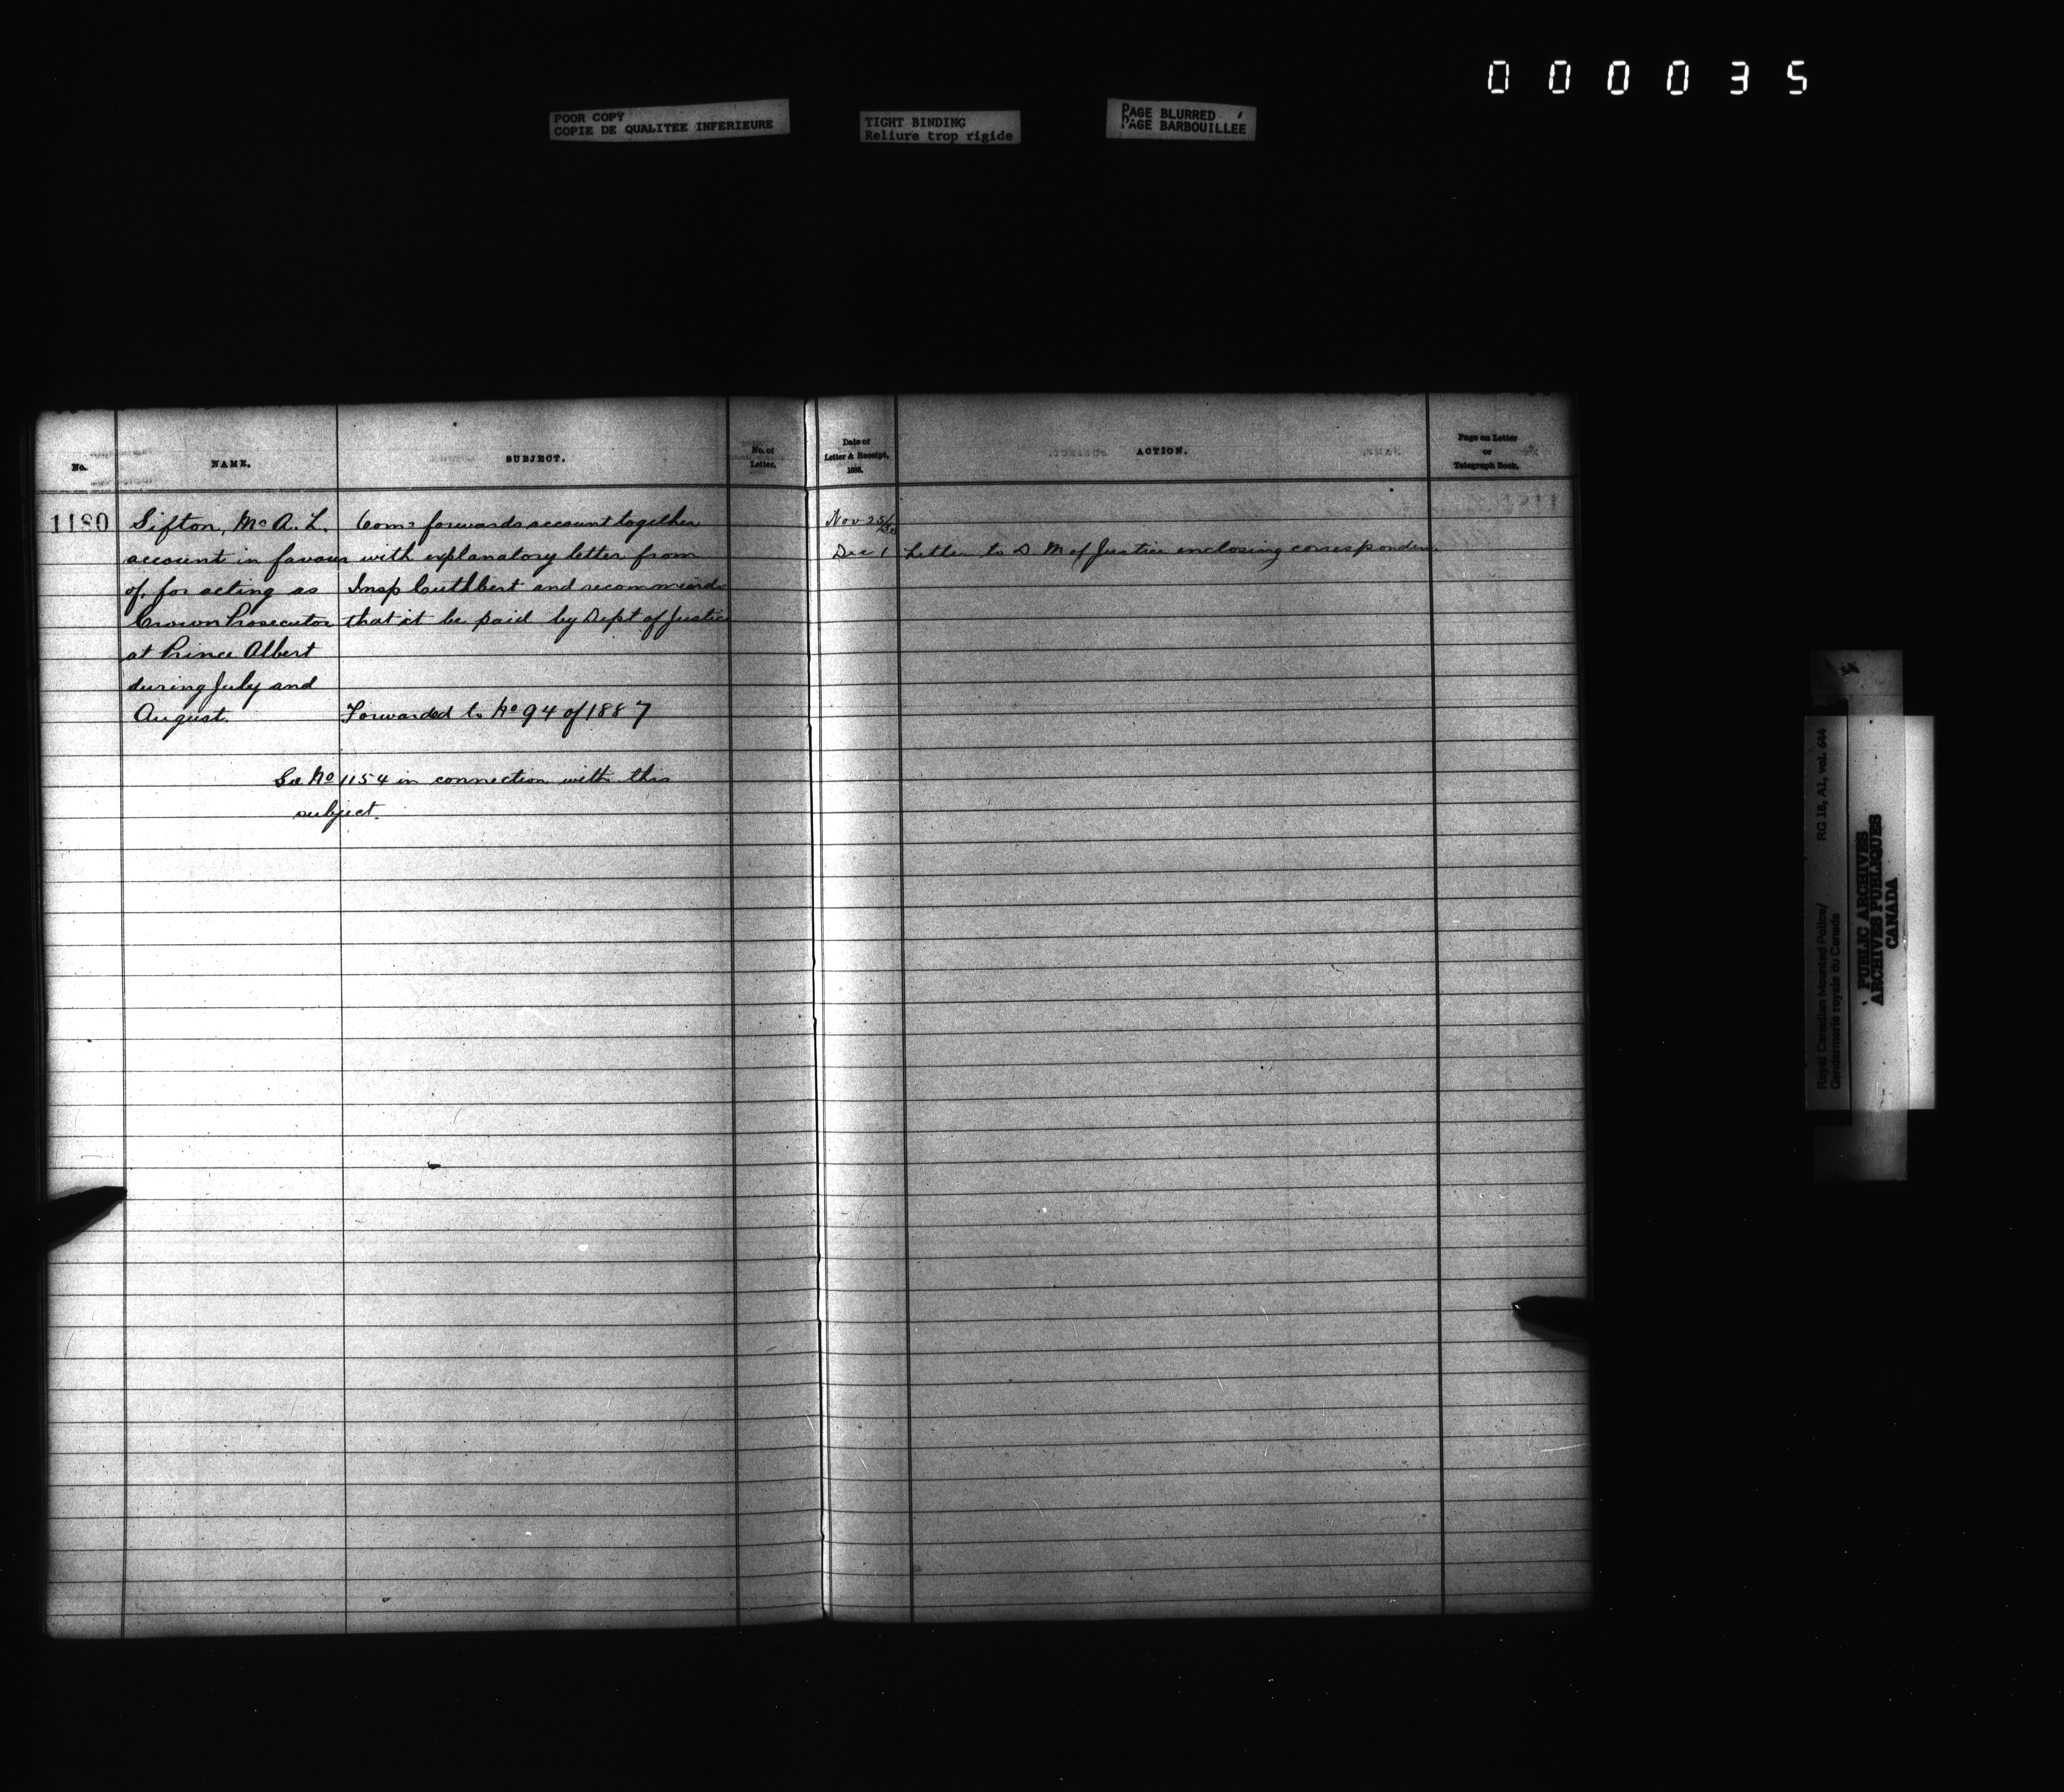 000035
POOR COPY
COPIE DE QUALITEE INFERIEURE
TIGHT BINDING
Reliure trop rigide
PAGE BLURRED
PAGE BARBOUILLEE
No.
NAME.
SUBJECT.
No. of
Letter.
Date of
Letter & Receipt,
1886.
ACTION.
Page on Letter
or
Telegraph Book.
1180
Sifton, Mr A. L.
account in favour
of, for acting as
Crown Prosecutor
at Prince Albert
during July and
August.
Comr forwards account together
with explanatory letter from
Insp Cuthbert and recommends
that it be paid by Dept of Justice
Forwarded to No 94 of 1887
See No 1154 in connection with this
subject.
Nov 25/30
Dec 1
Letter to D. M of Justice enclosing correspondence
Royal Canadian Mounted Police/
Gendarmerie royale du Canada
RG 18, A1, vol. 644
PUBLIC ARCHIVES
ARCHIVES PUBLIQUES
CANADA